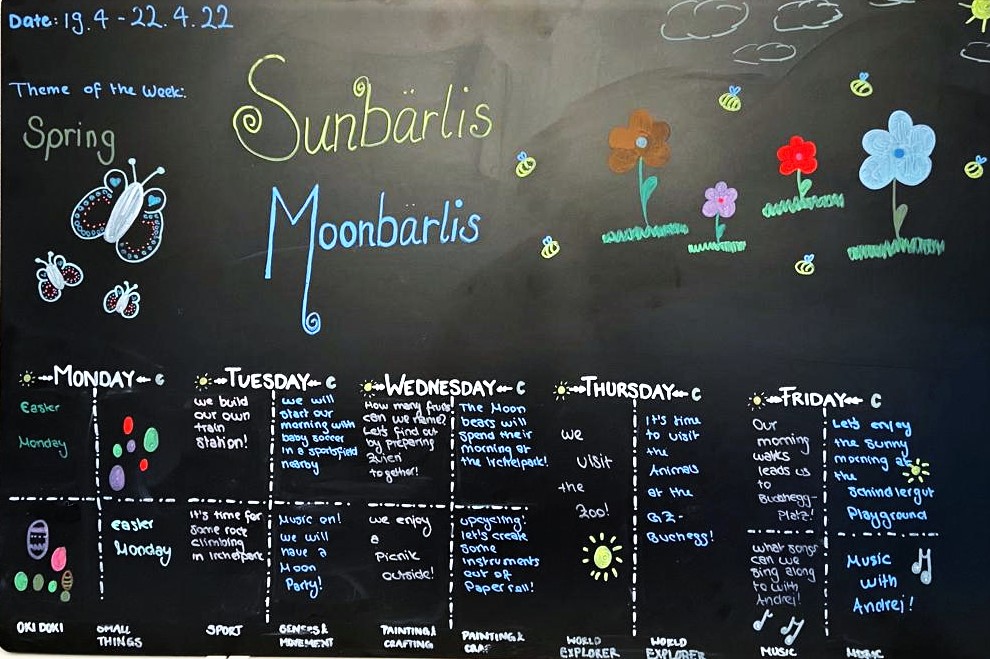 Date: 19.4 - 22.4.22
Theme of the week:
Spring
Sunbärlis
Moonbärlis
MONDAY
Easter
Monday
easter
Monday
OKI DOKI
SMALL
THINGS
TUESDAY
we build
our own
train
station!
It's time for
some rock
climbing
in Irchelpark
SPORT
we will
start our
morning with
baby soccer
in a sportsfield
nearby
Music on!
we will
have a
Moon
Party!
SENSES &
MOVEMENT
WEDNESDAY
How many fruits
can we name?
Let's find out
by preparing
together!
we enjoy
a
Picnik
outside!
PAINTING &
CRAFTING
The Moon
bears will
spend their
morning at
the Irchelpark!
upcycling!
let's create
some
instruments
out of
Paper roll!
PAINTING &
THURSDAY
we
visit
the
Zoo!
WORLD
EXPLORER
It's time
to visit
the
Animals
at the
GZ-
Buchegg!
WORLD
EXPLORER
FRIDAY
Our
morning
walks
leads us
to
Bucheggplatz!
what songs
can we
sing along
to with
Andrej!
MUSIC
Let's enjoy
the sunny
morning at
the
Schindlergut
Playground
Music
with
Andrej!
MUSIC